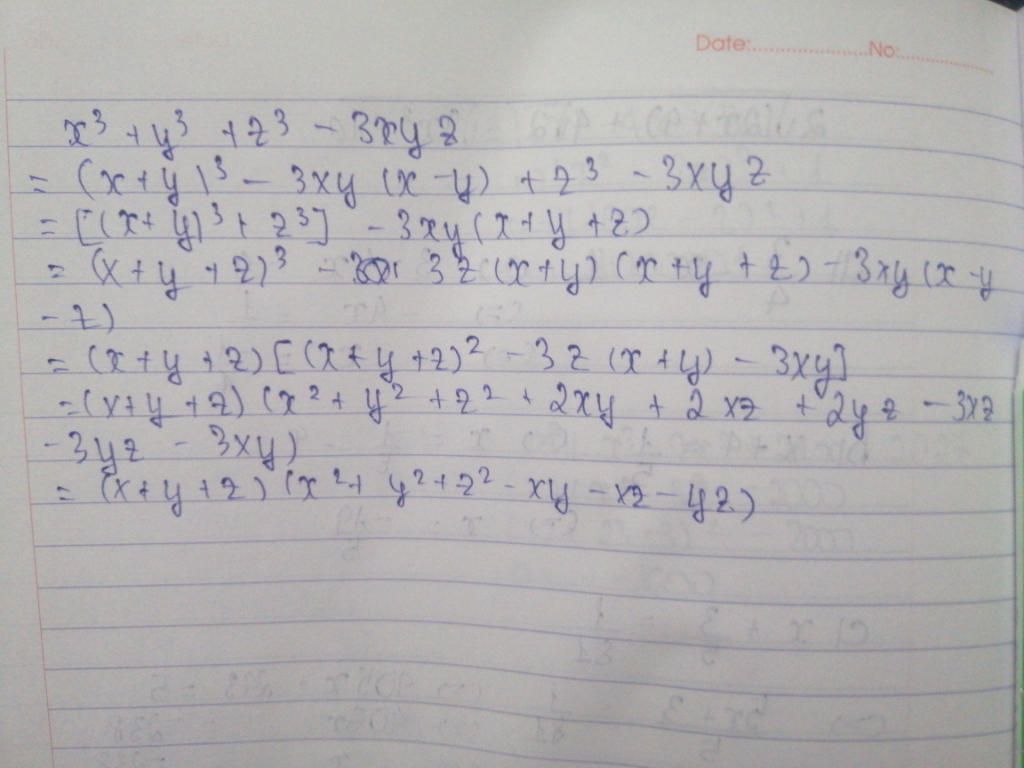 Date:.....................No:.....................
x³ + y³ + z³ - 3xyz
= (x+y)³ - 3xy (x-y) + z³ - 3xyz
= [(x+y)³ + z³] - 3xy(x+y+z)
= (x+y+z)³ - 3z(x+y)(x+y+z) - 3xy(x-y
-z)
= (x+y+z)[(x+y+z)² - 3z(x+y) - 3xy]
= (x+y+z)(x² + y² + z² + 2xy + 2xz + 2yz - 3xz
-3yz - 3xy)
= (x+y+z)(x² + y² + z² - xy - xz - yz)